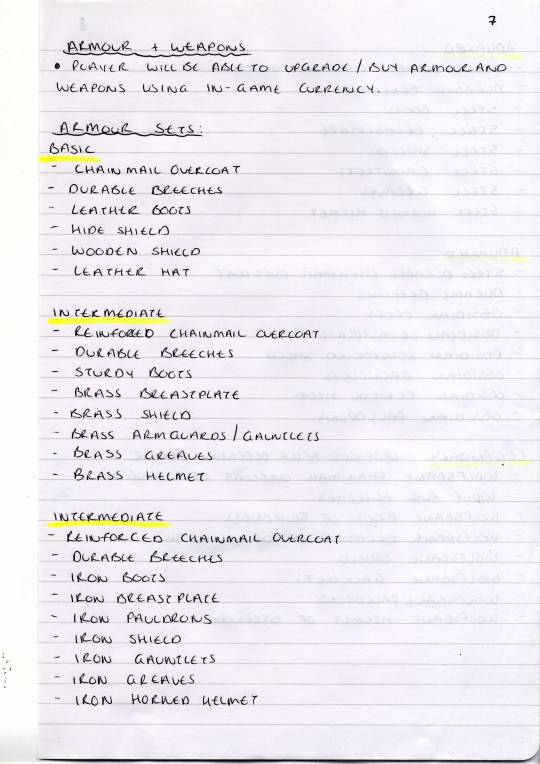 7
ARMOUR + WEAPONS
• PLAYER WILL BE ABLE TO UPGRADE / BUY ARMOUR AND
WEAPONS USING IN-GAME CURRENCY.
ARMOUR SETS:
BASIC
- CHAINMAIL OVERCOAT
- DURABLE BREECHES
- LEATHER BOOTS
- HIDE SHIELD
- WOODEN SHIELD
- LEATHER HAT
INTERMEDIATE
- REINFORED CHAINMAIL OVERCOAT
- DURABLE BREECHES
- STURDY BOOTS
- BRASS BREASTPLATE
- BRASS SHIELD
- BRASS ARMGUARDS / GAUNTLETS
- BRASS GREAVES
- BRASS HELMET
INTERMEDIATE
- REINFORCED CHAINMAIL OVERCOAT
- DURABLE BREECHES
- IRON BOOTS
- IRON BREASTPLATE
- IRON PAULDRONS
- IRON SHIELD
- IRON GAUNTLETS
- IRON GREAVES
- IRON HORNED HELMET